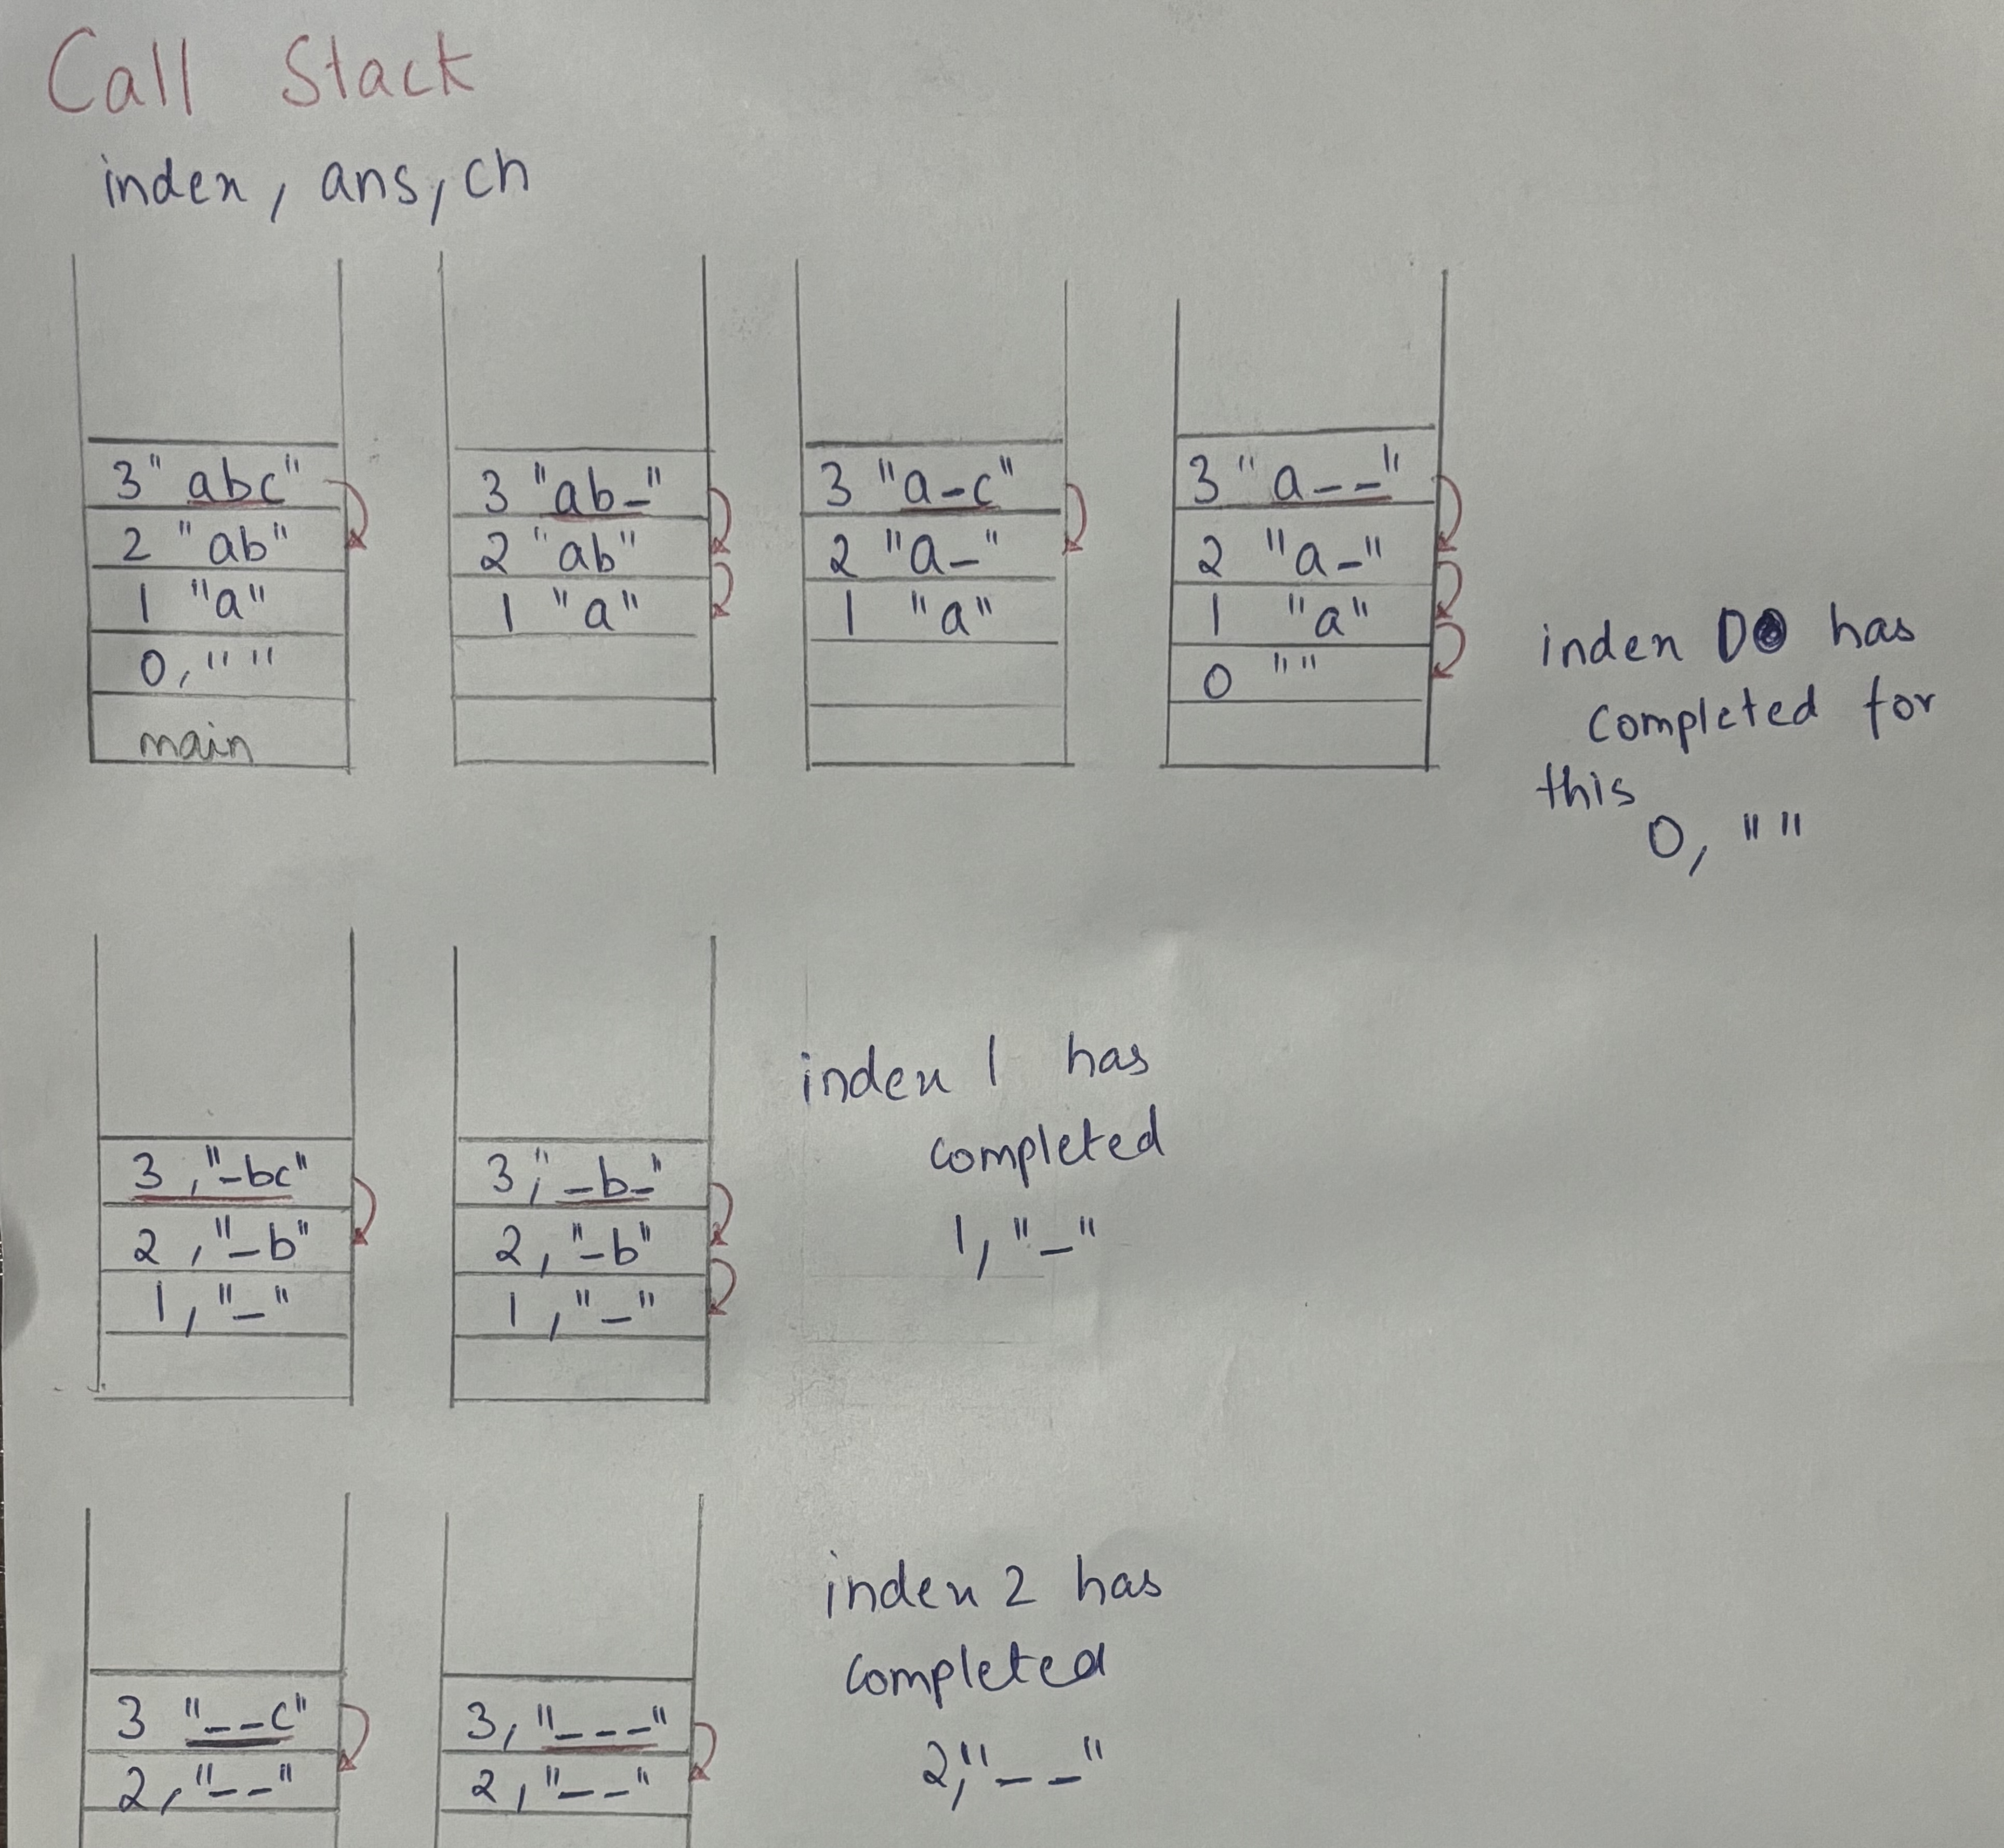 Call Stack
index, ans, ch
3 "abc"
2 "ab"
1 "a"
0, " "
main
3 "ab_"
2 "ab"
1 "a"
3 "a_c"
2 "a_"
1 "a"
3 "a__"
2 "a_"
1 "a"
0 ""
index 0 has
completed for
this
0, " "
3, "_bc"
2, "_b"
1, "_"
3, "_b_"
2, "_b"
1, "_"
index 1 has
completed
1, "_"
3 "__c"
2, "__"
3, "___"
2, "__"
index 2 has
completed
2, "__"